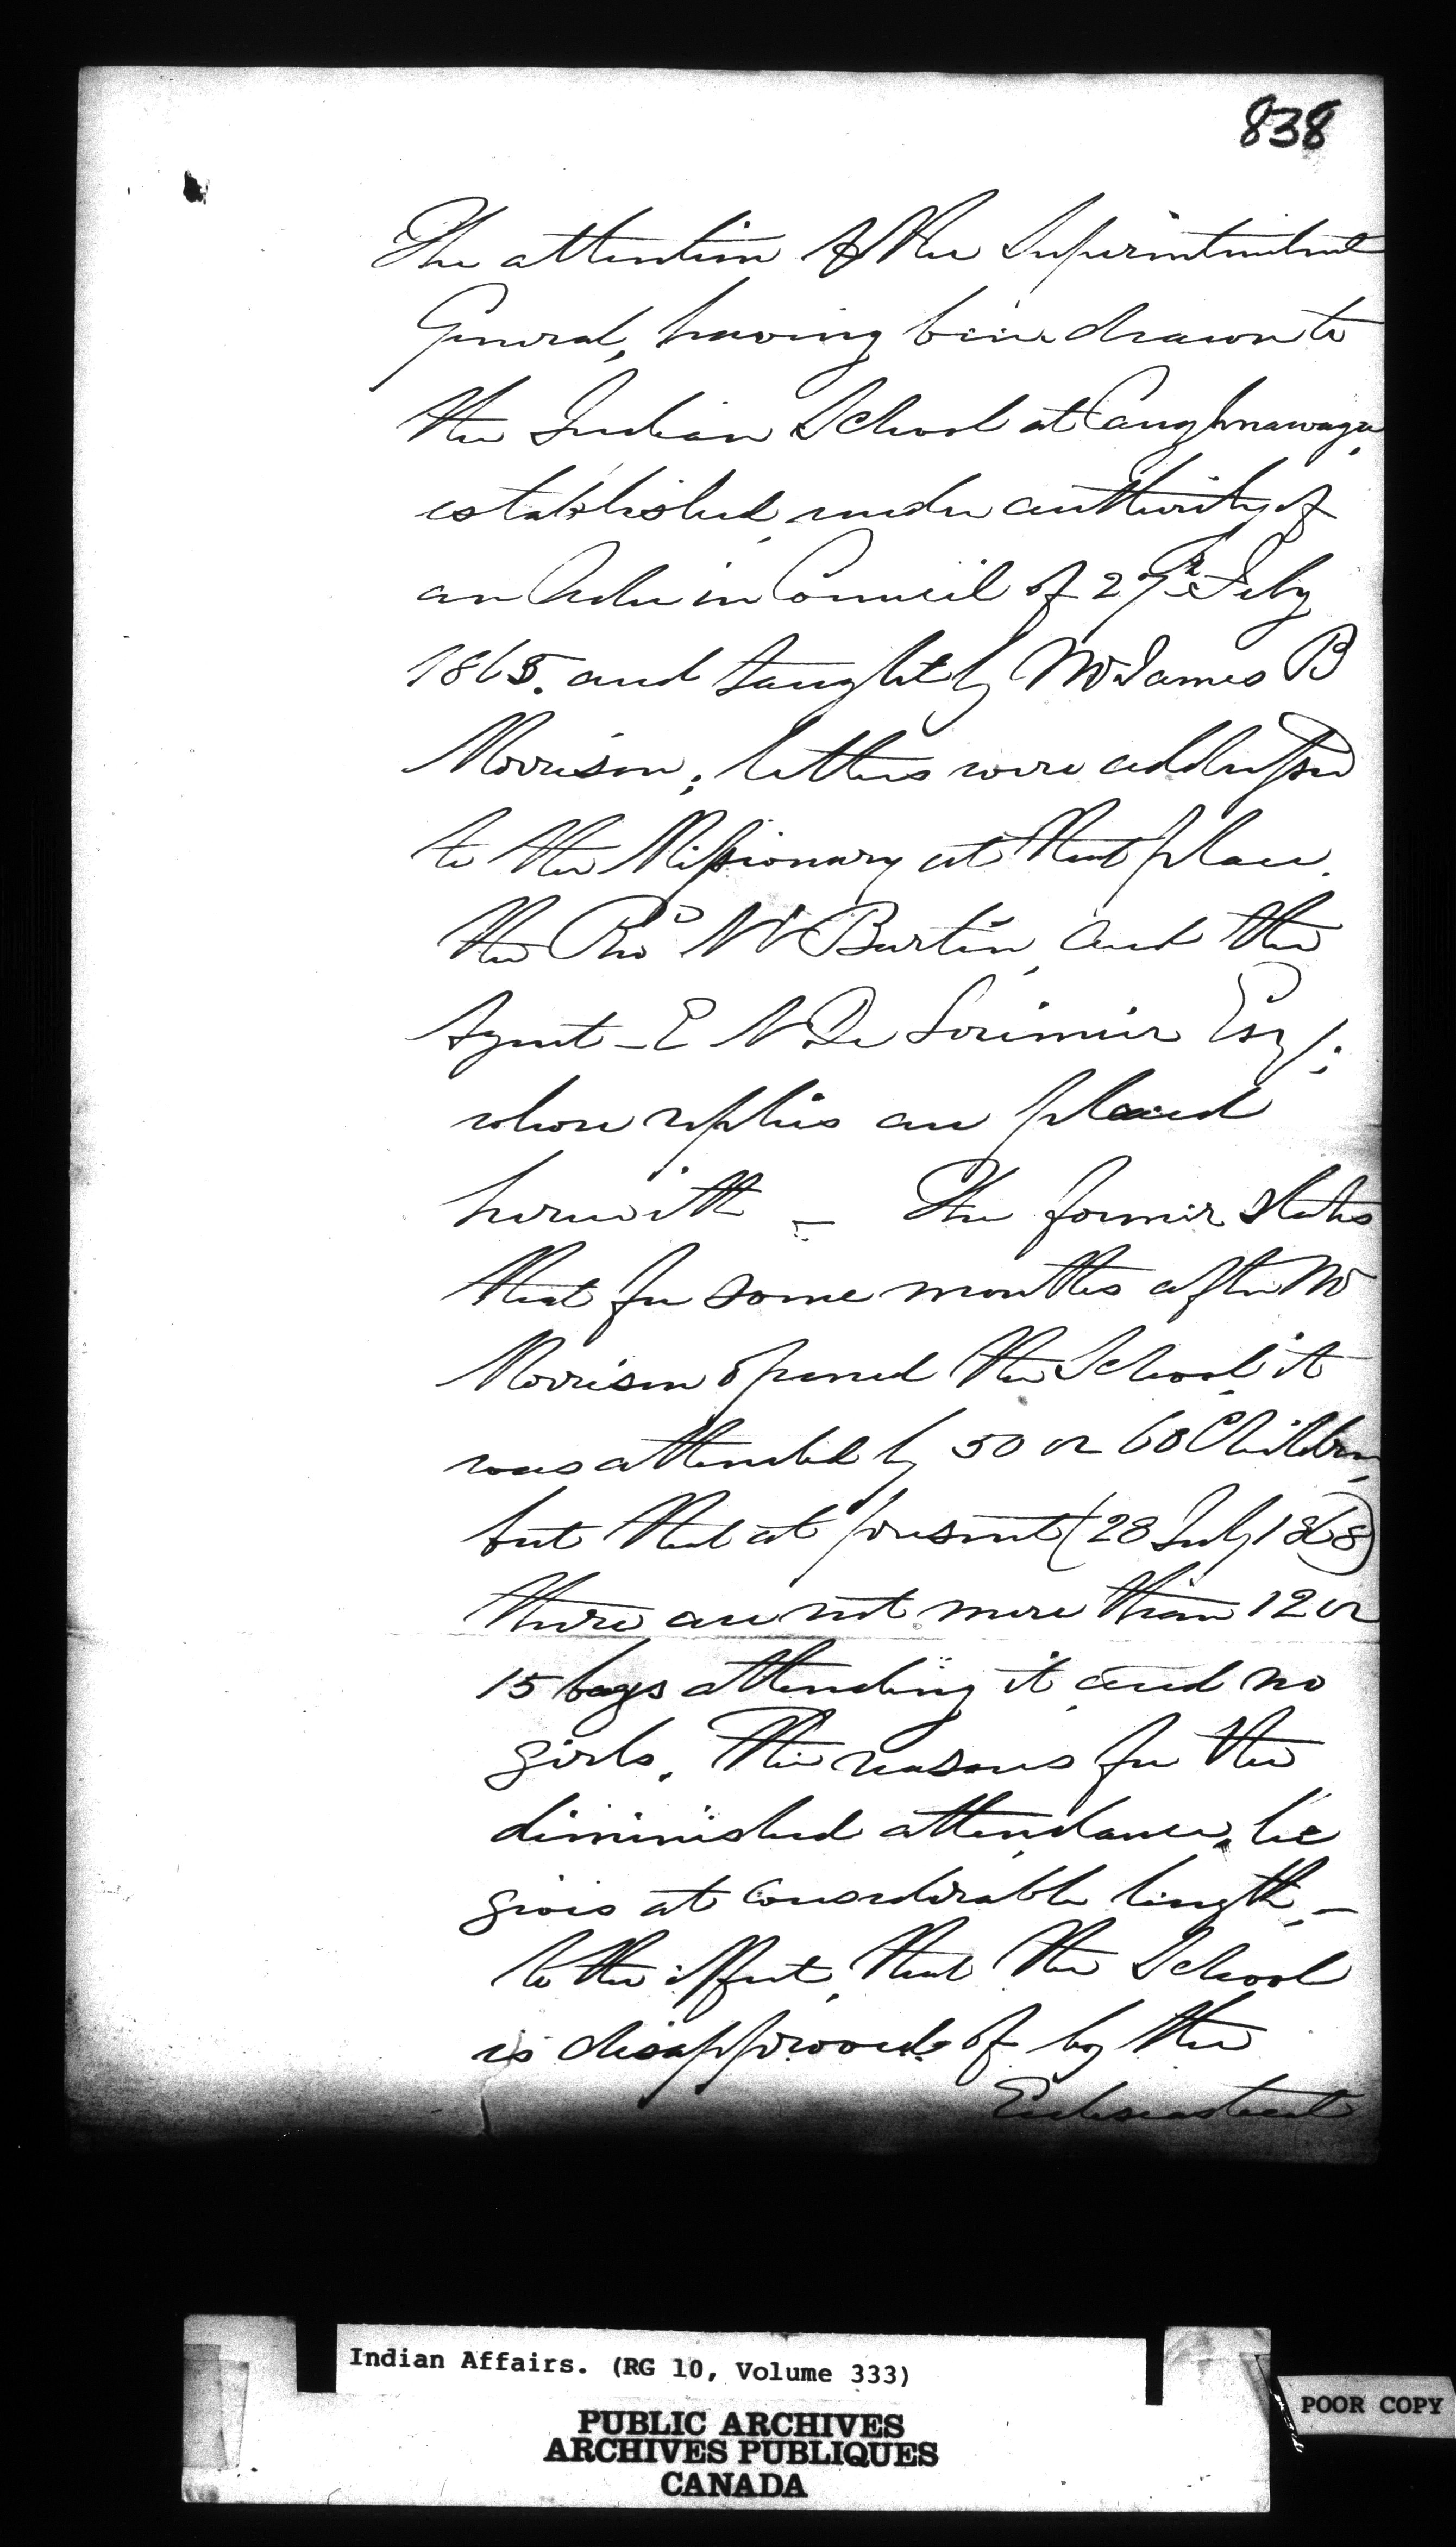 838
The attention of the Superintendent
General, having been drawn to
the Indian School at Caughnawaga,
established, under authority of
an Order in Council of 27th Feby
1865. and taught by Mr James B
Morrison; letters were addressed
to the Missionary at that place.
the Revd N V Burtin, and the
Agent - E N De Lorimier Esq/;
whose replies are placed
herewith - The former states
that for some months after Mr
Morrison opened the School, it
was attended by 50 or 60 Children,
but that at present (28 July 1868)
there are not more than 12 or
15 boys attending it, and no
girls. The reasons for the
diminished attendance, he
gives at considerable length, -
to the effect, that the School
is disapproved of by the
Eclesiastical
Indian Affairs. (RG 10, Volume 333)
PUBLIC ARCHIVES
ARCHIVES PUBLIQUES
CANADA
POOR COPY